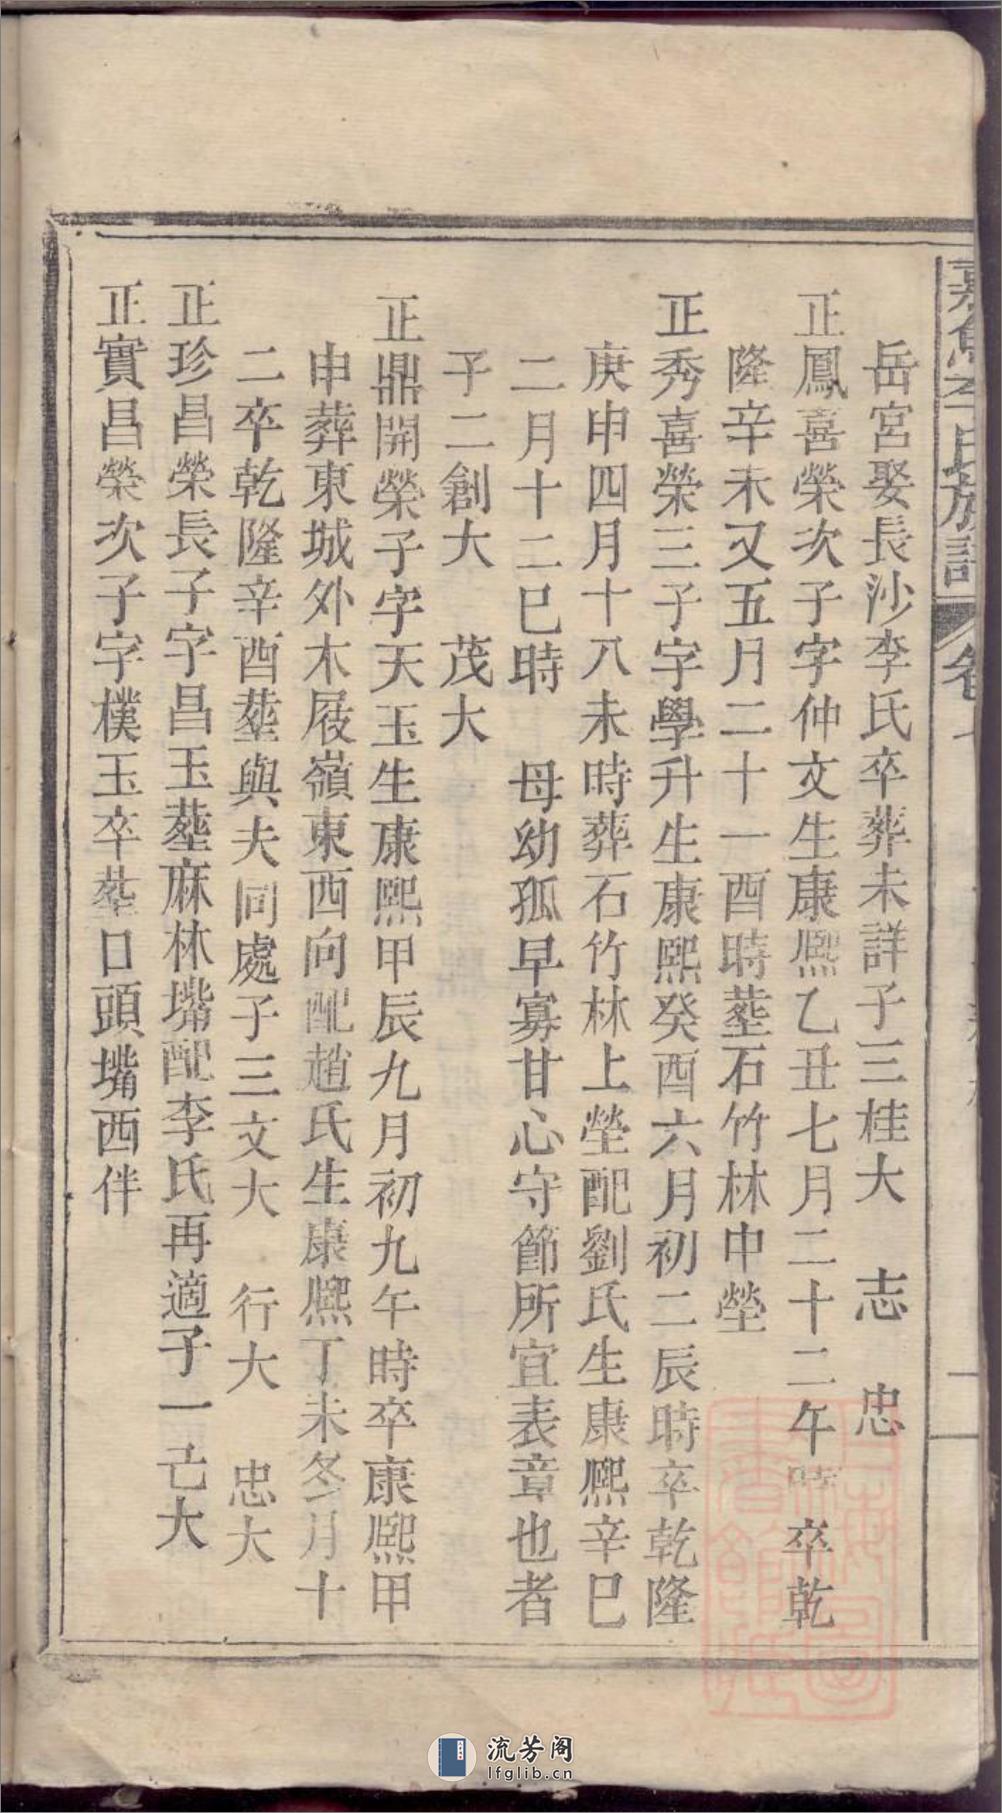 嘉魚李氏族譜 卷
岳宮娶長沙李氏卒葬未詳子三桂大 志 忠
正鳳喜榮次子字仲文生康熙乙丑七月二十二午時卒乾
隆辛未又五月二十一酉時塟石竹林中塋
正秀喜榮三子字學升生康熙癸酉六月初二辰時卒乾隆
庚申四月十八未時葬石竹林上塋配劉氏生康熙辛巳
二月十二巳時 母幼孤早寡甘心守節所宜表章也者
子二創大 茂大
正鼎開榮子字天玉生康熙甲辰九月初九午時卒康熙甲
申葬東城外木屐嶺東西向配趙氏生康熙丁未冬月十
二卒乾隆辛酉塟與夫同處子三文大 行大 忠大
正珍昌榮長子字昌玉塟麻林嘴配李氏再適子一亡大
正實昌榮次子字樸玉卒塟口頭嘴西伴
流芳阁
lfglib.cn